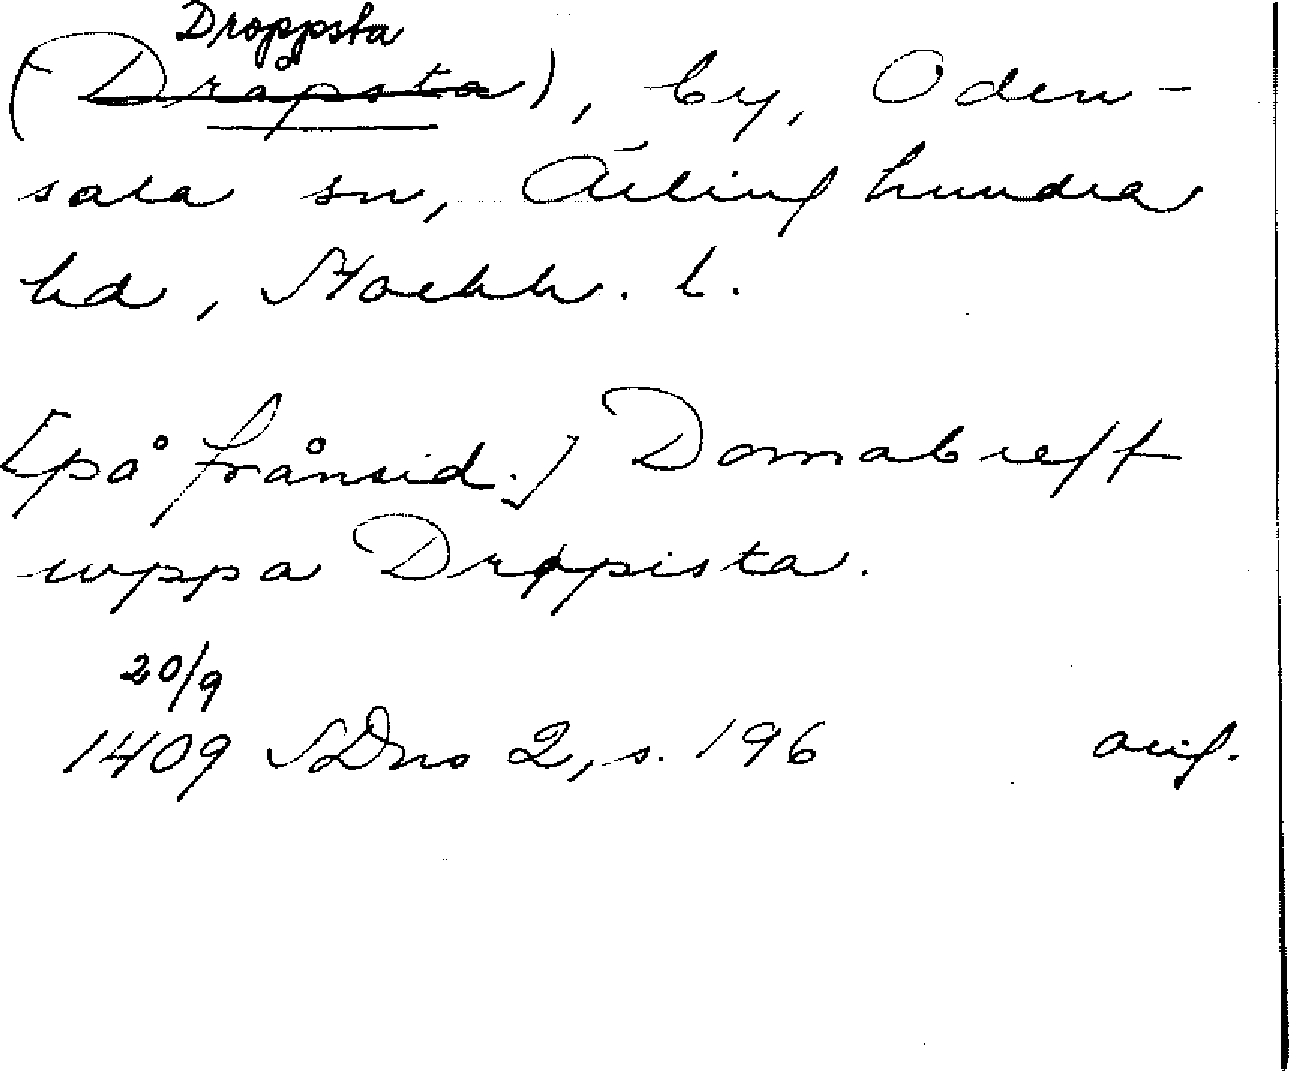 Droppsta
(Dråpsta), by, Oden-
sala sn, Ärlinghundra
hd, Stockh. l.
[på frånsid.] Domabreff
uppa Droppista.
20/9
1409 SDns 2, s. 196 avig.